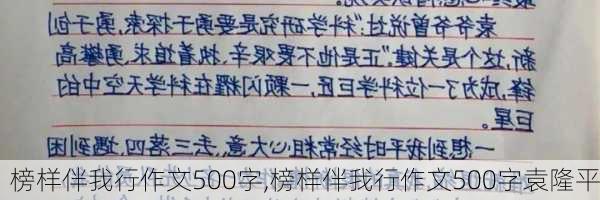 袁爷爷曾说过:“科学研究是要勇于探索,勇于创
新,这个是关键。”正是他不畏艰辛、执着追求、勇攀高
锋,成为了一位科学巨匠,一颗闪耀在科学天空中的
巨星。
一想到我平时经常粗心大意,丢三落四,遇到困
榜样伴我行作文500字,榜样伴我行作文500字袁隆平